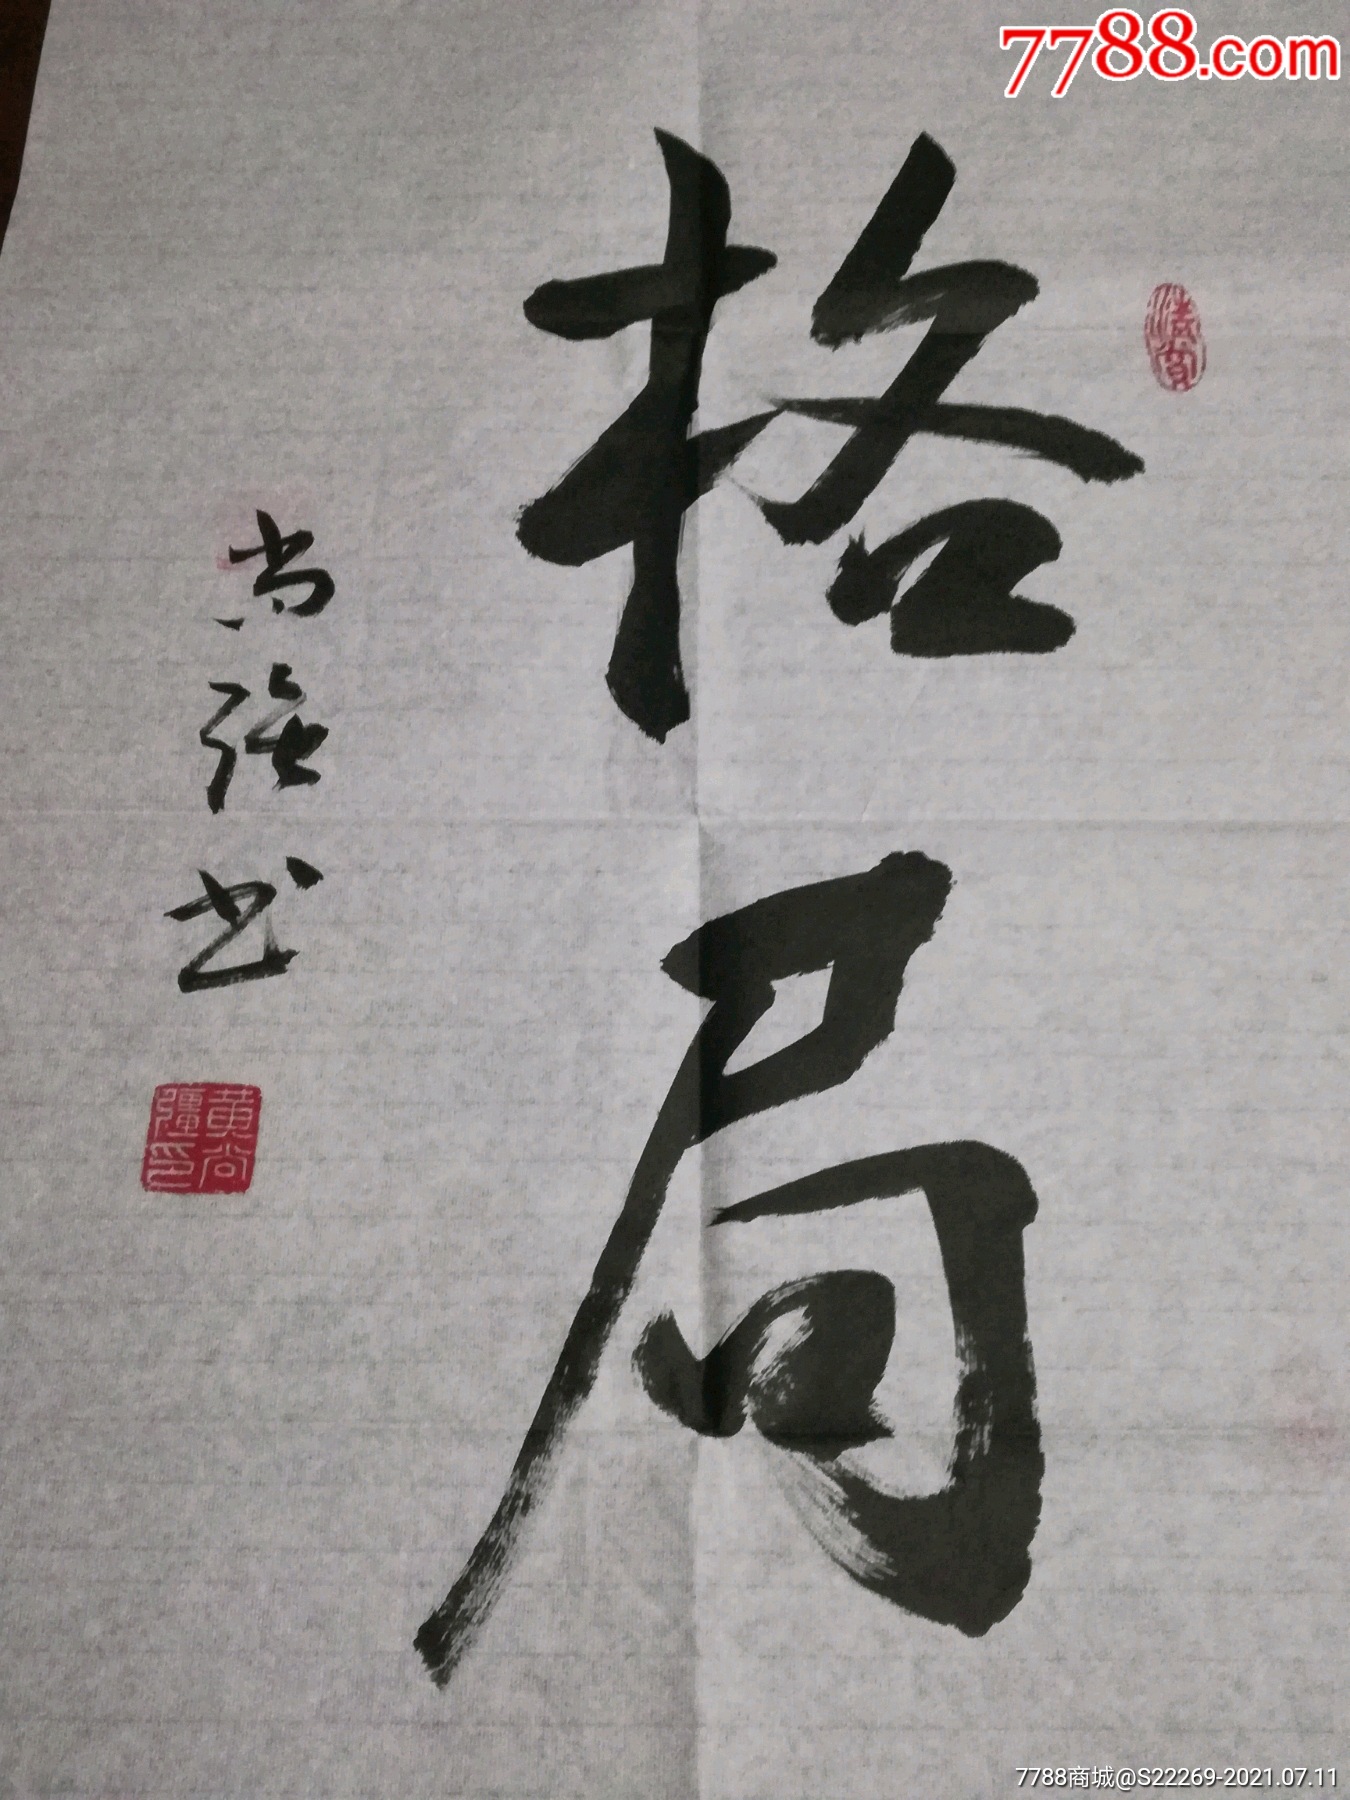 7788.com
格局
尚强书
黄尚
疆印
7788商城@S22269-2021.07.11